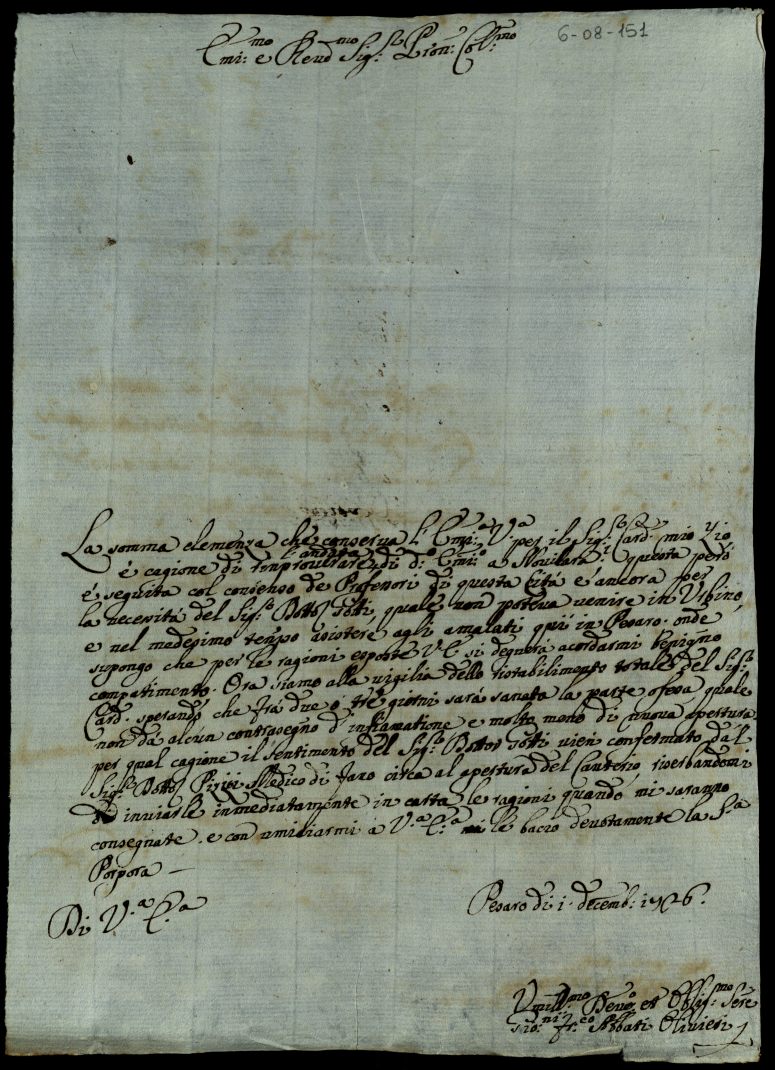 Emi:mo e Revdmo Sig:re Pron: Col:mo
6-08-151
La somma clemenza che conserva l'Emi:a V:a per il Sig:r Card: mio Zio
é cagione di l'andata di d:o Emi:o a Novilara questa però
é seguita col consenso de Profesori di questa Cità e ancora per
la necesità del Sig:r Dottor, quale non poteva venire in Urbino,
e nel medesimo tempo asistere agli amalati quì in Pesaro. onde
supongo che per le ragioni esposte V:E: si degnerà acordarmi benigno
compatimento. Ora siamo alla vigilia dello ristabilimento totale del Sig:r
Card: sperando che frà due o trè giorni sarà sanata la parte ofesa, quale
non dà alcun contrasegno d'infiamatione e molto meno di nuova apertura
per qual cagione il sentimento del Sig:r Dottor vien confermato dàl
Sig:r Dottor Medico di Fano circa al apertura del Cauterio, riserbandomi
inviarle inmediatamente in carta le ragioni quando mi saranno
consegnate. e con umiliarmi à V:a E:a le bacio devotamente la S:a
Porpora —
Di V:a E:a
Pesaro di 1. decemb: 1726.
Umill:mo Devo: et Obblig:mo Serre
Abbati Olivieri